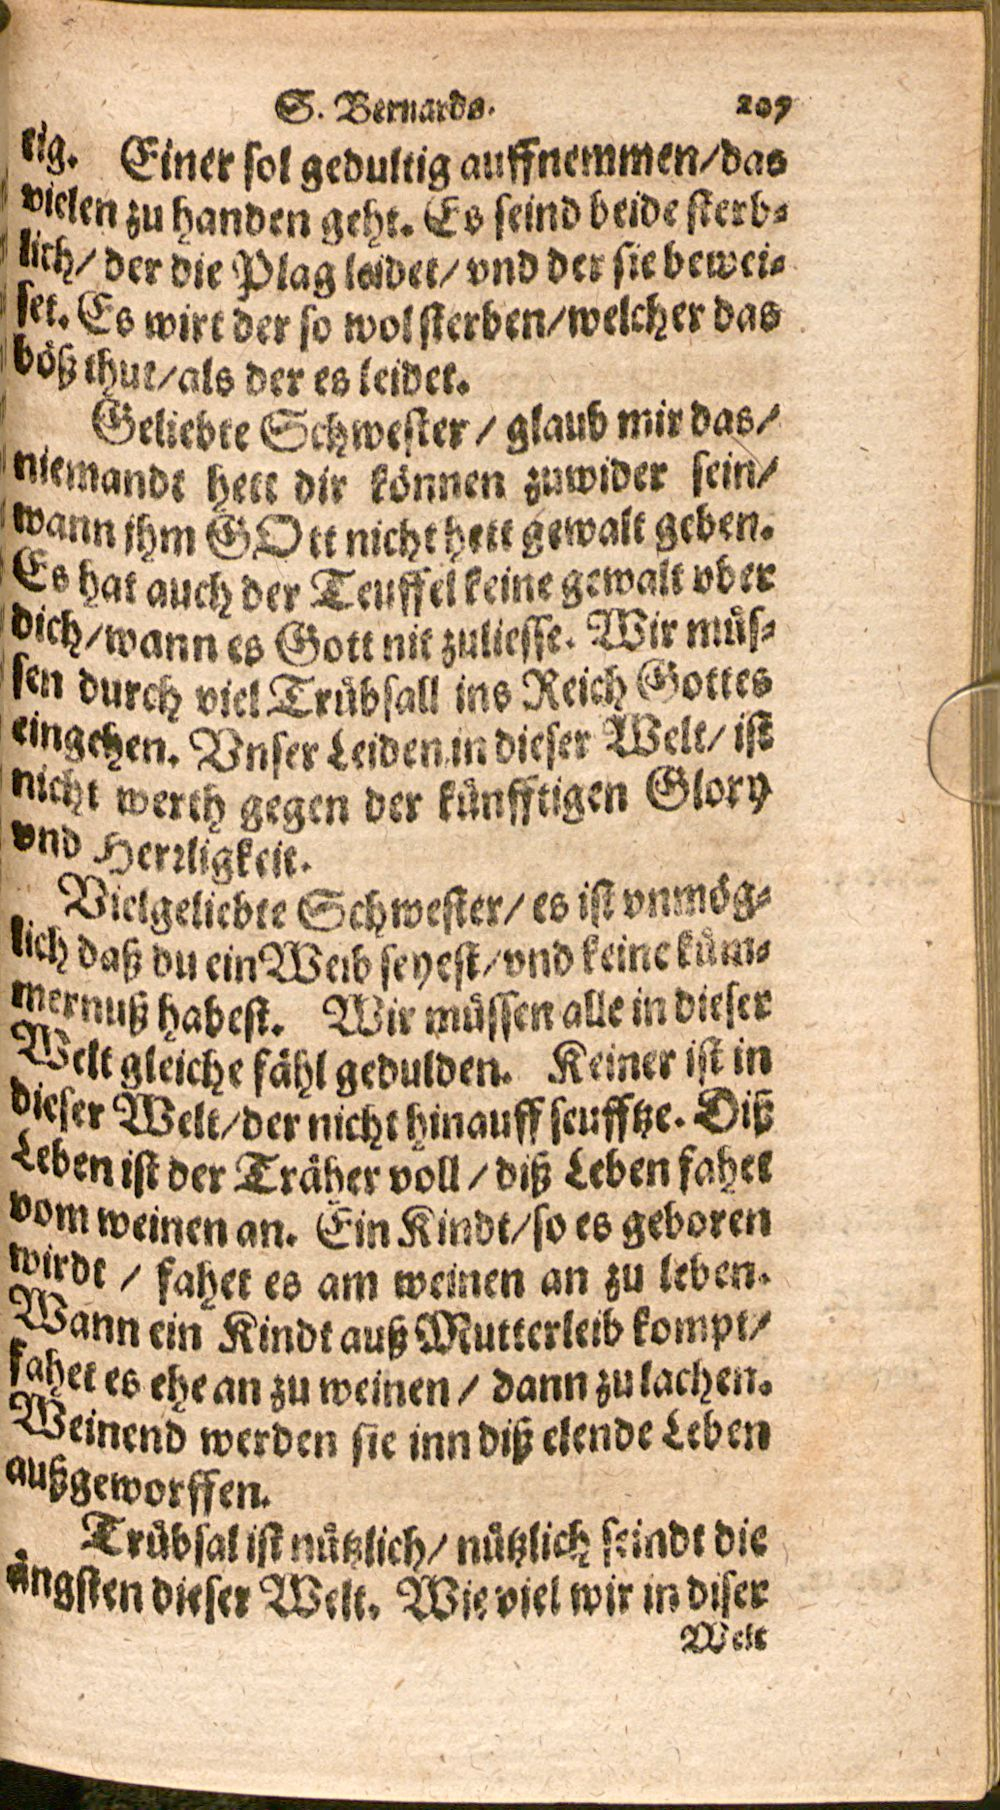 S. Bernards. 207
tig. Einer sol gedultig auffnemmen/das
vielen zu handen geht. Es seind beide sterb-
lich/ der die Plag leidet/ vnd der sie bewei-
set. Es wirt der so wol sterben/welcher das
böß thut/als der es leidet.
Geliebte Schwester / glaub mir das/
niemandt hett dir können zuwider sein/
wann ihm GOtt nicht hett gewalt geben.
Es hat auch der Teuffel keine gewalt vber
dich/wann es Gott nit zuliesse. Wir müs-
sen durch viel Trübsall ins Reich Gottes
eingehen. Vnser Leiden in dieser Welt/ ist
nicht werth gegen der künfftigen Glory
vnd Herrligkeit.
Vielgeliebte Schwester/ es ist vnmög-
lich daß du ein Weib seyest/vnd keine küm-
mernuß habest. Wir müssen alle in dieser
Welt gleiche fähl gedulden. Keiner ist in
dieser Welt/der nicht hinauff seufftze. Diß
Leben ist der Träher voll / diß Leben fahet
vom weinen an. Ein Kindt/so es geboren
wirdt / fahet es am weinen an zu leben.
Wann ein Kindt auß Mutterleib kompt/
fahet es ehe an zu weinen / dann zu lachen.
Weinend werden sie inn diß elende Leben
außgeworffen.
Trübsal ist nützlich/ nützlich seindt die
ängsten dieser Welt. Wie viel wir in diser
Welt